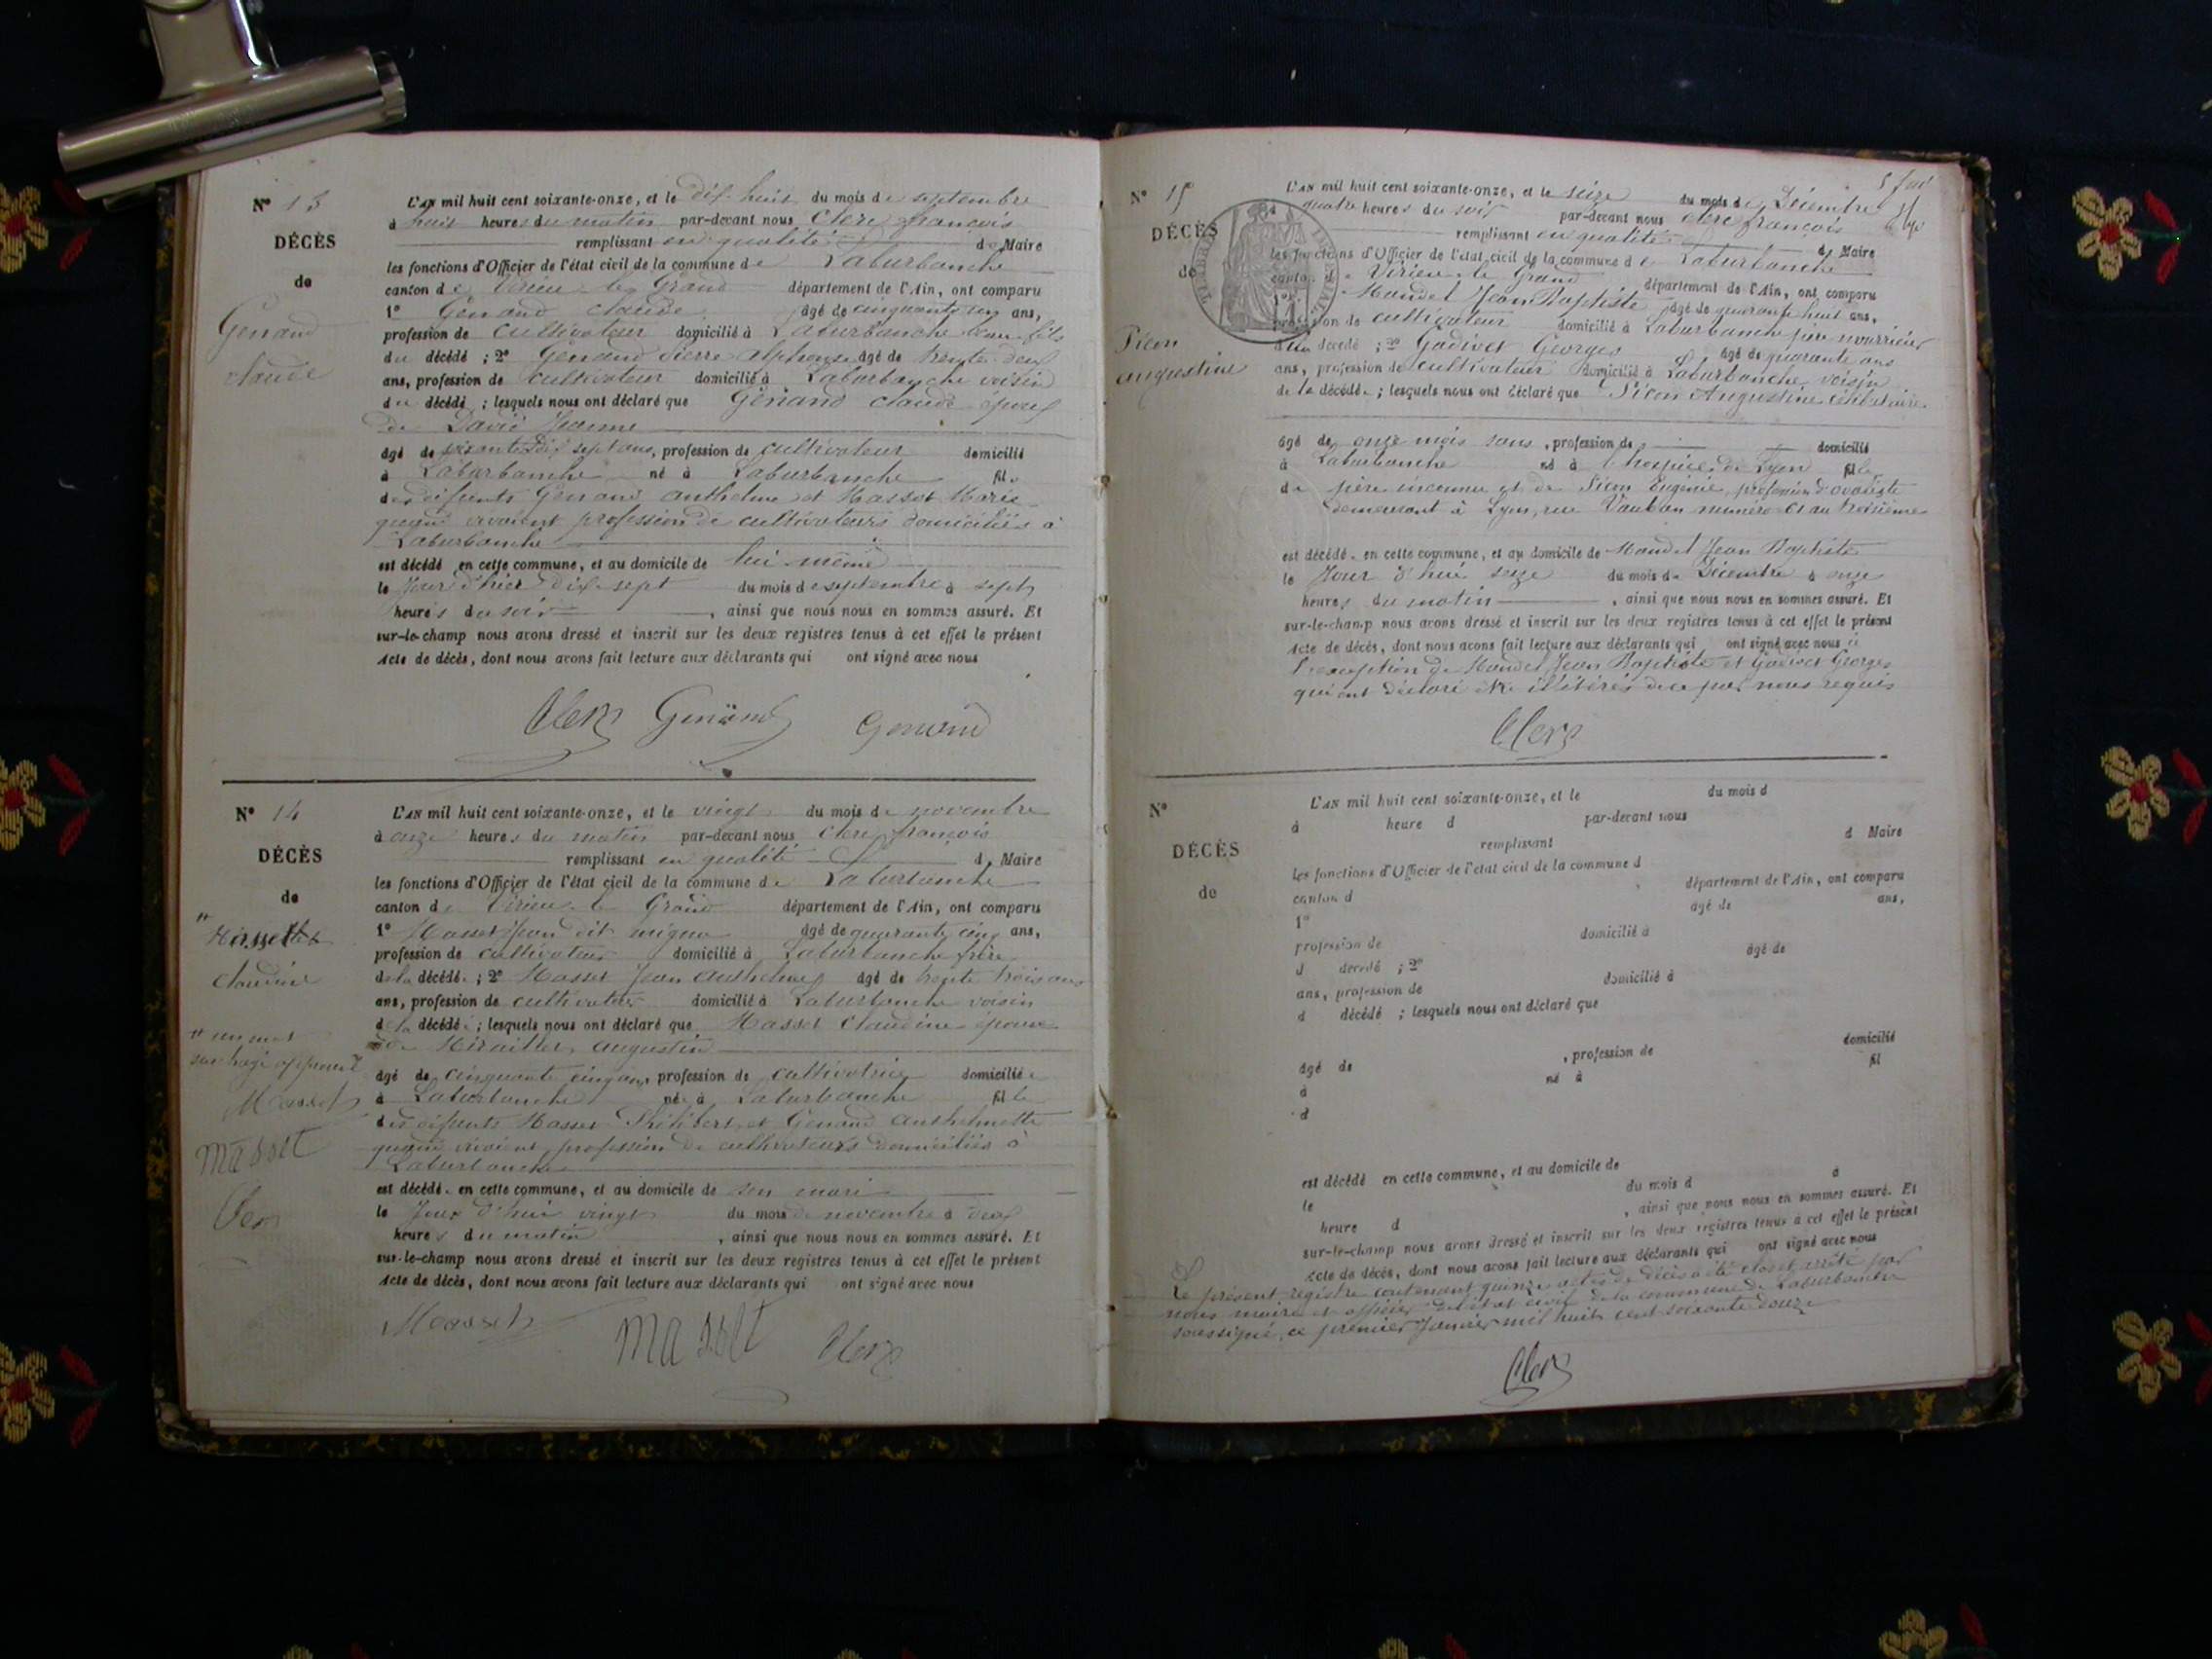 N° 13
DÉCÈS
de
Genand
claude
L'AN mil huit cent soixante-onze, et le dix huit du mois de septembre
à huit heures du matin par-devant nous Clerc françois
remplissant en qualité de Maire
les fonctions d'Officier de l'état civil de la commune de Laburbanche
canton de Virieu le Grand département de l'Ain, ont comparu
1° Genand claude âgé de cinquante un ans,
profession de cultivateur domicilié à Laburbanche beau fils
du décédé ; 2° Genand Pierre alphonse âgé de trente deux
ans, profession de cultivateur domicilié à Laburbanche voisin
du décédé ; lesquels nous ont déclaré que Genand claude époux
de David Jeanne
âgé de soixante dix sept ans, profession de cultivateur domicilié
à Laburbanche né à Laburbanche fils
des défunts Genand anthelme et Masset Marie
quand vivaient profession de cultivateurs domiciliés à
Laburbanche
est décédé en cette commune, et au domicile de lui même
le Jour d'hier dix sept du mois de septembre à sept
heures du soir , ainsi que nous nous en sommes assuré. Et
sur-le-champ nous avons dressé et inscrit sur les deux registres tenus à cet effet le présent
Acte de décès, dont nous avons fait lecture aux déclarants qui ont signé avec nous
Clerc Genand Genand
N° 14
DÉCÈS
de
claudine
Masset
masset
Clerc
L'AN mil huit cent soixante-onze, et le vingt du mois de novembre
à onze heures du matin par-devant nous Clerc françois
remplissant en qualité d Maire
les fonctions d'Officier de l'état civil de la commune de Laburbanche
canton de Virieu le Grand département de l'Ain, ont comparu
1° Masset Jean dit âgé de quarante cinq ans,
profession de cultivateur domicilié à Laburbanche frère
de la décédée ; 2° Masset Jean Anthelme âgé de trente trois ans
ans, profession de cultivateur domicilié à Laburbanche voisin
de la décédée ; lesquels nous ont déclaré que Masset claudine épouse
de augustin
âgé de cinquante cinq ans, profession de cultivatrice domiciliée
à Laburbanche née à Laburbanche fille
des défunts Masset Philibert et Genand Anthelmette
quand vivaient profession de cultivateurs domiciliés à
Laburbanche
est décédée en cette commune, et au domicile de son mari
le Jour d'hui vingt du mois de novembre à deux
heures du matin , ainsi que nous nous en sommes assuré. Et
sur-le-champ nous avons dressé et inscrit sur les deux registres tenus à cet effet le présent
Acte de décès, dont nous avons fait lecture aux déclarants qui ont signé avec nous
Masset masset Clerc
N° 15
DÉCÈS
de
Picon
augustine
L'AN mil huit cent soixante-onze, et le seize du mois de Décembre
à quatre heures du soir par-devant nous clerc françois
remplissant en qualité d Maire
les fonctions d'Officier de l'état civil de la commune de Laburbanche
canton de Virieu le Grand département de l'Ain, ont comparu
1° Jean Baptiste âgé de quarante huit ans,
profession de cultivateur domicilié à Laburbanche père nourricier
de la décédée ; 2° Gadivet Georges âgé de quarante ans
ans, profession de cultivateur domicilié à Laburbanche voisin
de la décédée ; lesquels nous ont déclaré que Picon Augustine célibataire
âgé de onze mois sans , profession de domicilié
à Laburbanche né à l'hospice de Lyon fille
de père inconnu et de Picon Eugénie, profession d'ovaliste
demeurant à Lyon, rue Vauban numéro 61 au troisième
est décédée en cette commune, et au domicile de Jean Baptiste
le Jour d'hui seize du mois de Décembre à onze
heures du matin , ainsi que nous nous en sommes assuré. Et
sur-le-champ nous avons dressé et inscrit sur les deux registres tenus à cet effet le présent
Acte de décès, dont nous avons fait lecture aux déclarants qui ont signé avec nous à
l'exception de Jean Baptiste et Gadivet Georges
qui ont déclaré être illétérés de ce par nous requis
Clerc
N°
DÉCÈS
de
L'AN mil huit cent soixante-onze, et le du mois d
à heure d par-devant nous
remplissant d Maire
les fonctions d'Officier de l'état civil de la commune d
canton d département de l'Ain, ont comparu
1° âgé de ans,
profession de domicilié à
d décédé ; 2° âgé de
ans, profession de domicilié à
d décédé ; lesquels nous ont déclaré que
âgé de , profession de domicilié
à né à fil
d
est décédé en cette commune, et au domicile de
le du mois d à
heure d , ainsi que nous nous en sommes assuré. Et
sur-le-champ nous avons dressé et inscrit sur les deux registres tenus à cet effet le présent
Acte de décès, dont nous avons fait lecture aux déclarants qui ont signé avec nous
Le présent registre contenant quinze actes de décès a été clos et arrêté par
nous maire et officier de l'état civil de la commune de Laburbanche
soussigné, ce premier Janvier mil huit cent soixante douze
Clerc